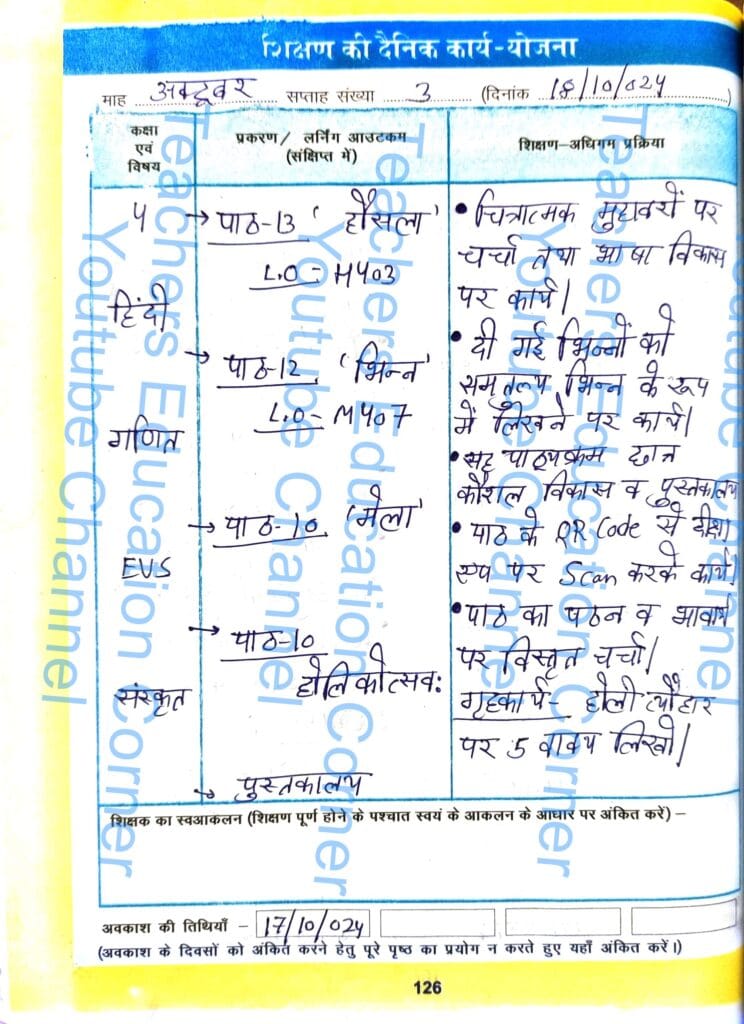 शिक्षण की दैनिक कार्य-योजना
माह अक्टूबर सप्ताह संख्या 3 (दिनांक 18/10/024)
कक्षा एवं विषय
प्रकरण / लर्निंग आउटकम (संक्षिप्त में)
शिक्षण-अधिगम प्रक्रिया
हिंदी
गणित
EVS
संस्कृत
→ पाठ-13 'हौसला'
L.O - H403
→ पाठ-12 'भिन्न'
L.O - M407
→ पाठ-10 'मेला'
→ पाठ-10
होलिकोत्सव:
→ पुस्तकालय
• चित्रात्मक मुहावरों पर
चर्चा तथा भाषा विकास
पर कार्य।
• दी गई भिन्नों को
समतुल्य भिन्न के रूप
में लिखने पर कार्य।
• सह पाठ्यक्रम छात्र
कौशल विकास व पुस्तकालय
• पाठ के QR Code से दीक्षा
एप पर Scan करके कार्य।
• पाठ का पठन व भावार्थ
पर विस्तृत चर्चा।
गृहकार्य - होली त्यौहार
पर 5 वाक्य लिखो।
शिक्षक का स्वआकलन (शिक्षण पूर्ण होने के पश्चात स्वयं के आकलन के आधार पर अंकित करें) –
अवकाश की तिथियाँ – 17/10/024
(अवकाश के दिवसों को अंकित करने हेतु पूरे पृष्ठ का प्रयोग न करते हुए यहाँ अंकित करें।)
126
Teachers Eucaion Corner
Youtube Channel
Teachers Education Corner
Youtube Channel
Teachers Education Corner
Youtube Channel